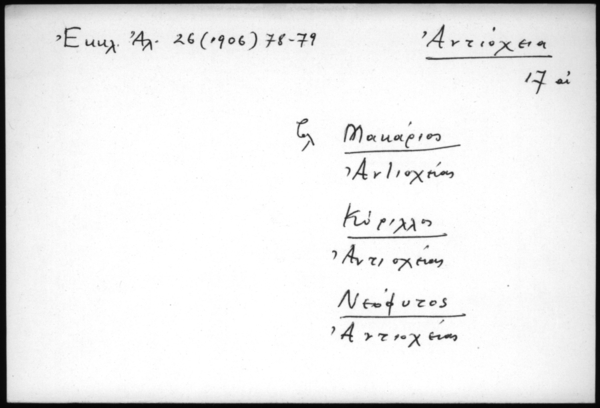 Ἐκκλ. Ἀλ. 26 (1906) 78-79
Ἀντιόχεια
17 αἰ
Μακάριος
Ἀντιοχείας
Κύριλλος
Ἀντιοχείας
Νεόφυτος
Ἀντιοχείας